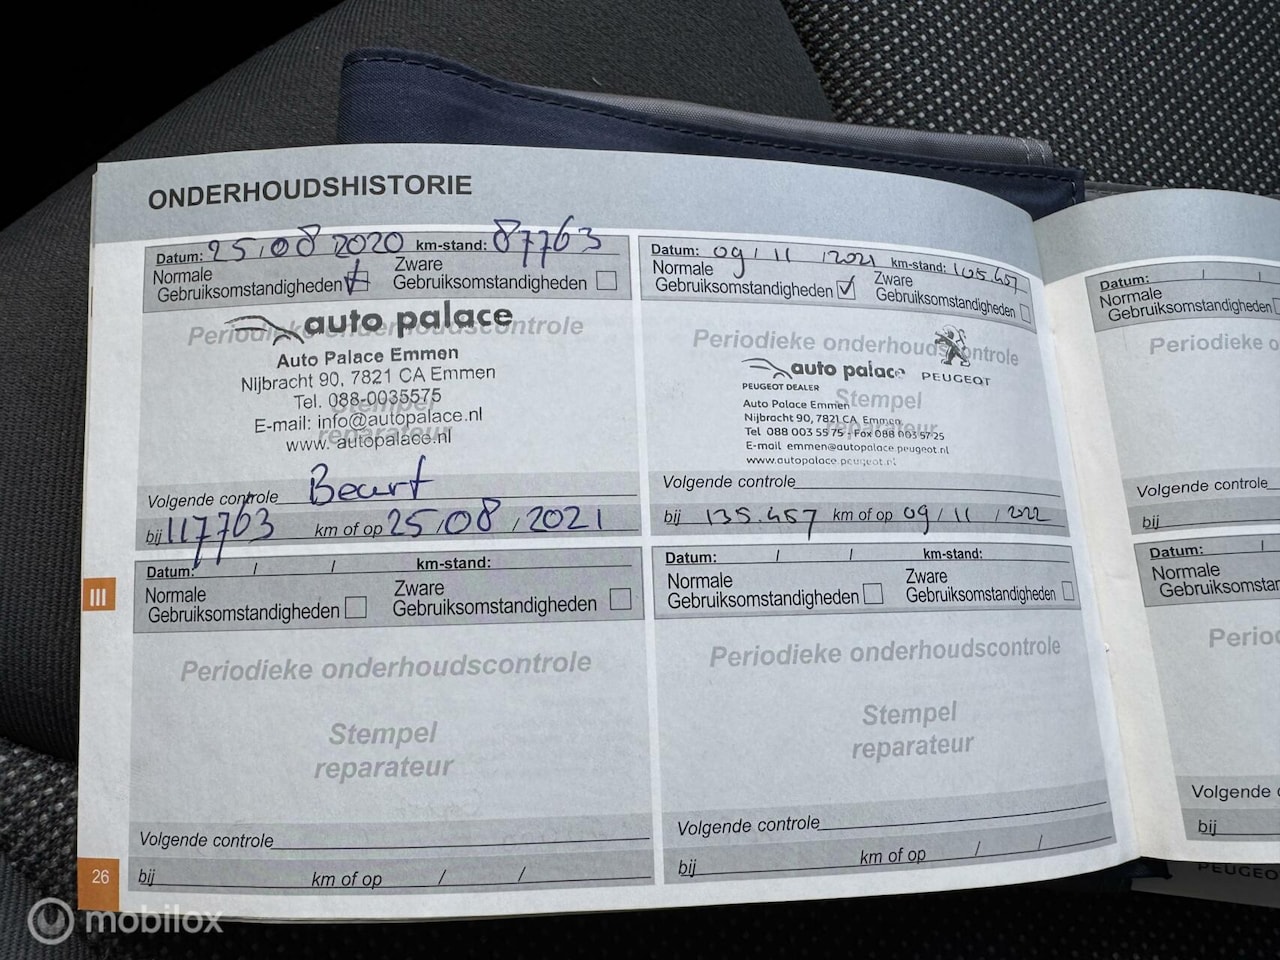 ONDERHOUDSHISTORIE
Datum: 25/08 2020 km-stand: 87763
Normale
Gebruiksomstandigheden
Zware
Gebruiksomstandigheden
Periodieke onderhoudscontrole
auto palace
Auto Palace Emmen
Nijbracht 90, 7821 CA Emmen
Tel. 088-0035575
Stempel
E-mail: info@autopalace.nl
reparateur
www. autopalace.nl
Volgende controle Beurt
bij 117763 km of op 25/08/2021
Datum: 09/11/2021 km-stand: 105.457
Normale
Gebruiksomstandigheden
Zware
Gebruiksomstandigheden
Periodieke onderhoudscontrole
auto palace PEUGEOT
PEUGEOT DEALER
Stempel
Auto Palace Emmen
Nijbracht 90, 7821 CA Emmen
reparateur
Tel 088 003 55 75 - Fax 088 003 57 25
E-mail emmen@autopalace.peugeot.nl
www.autopalace.peugeot.nl
Volgende controle
bij 135.457 km of op 09/11/2022
Datum: / / km-stand:
Normale
Gebruiksomstandigheden
Zware
Gebruiksomstandigheden
Periodieke onderhoudscontrole
Stempel
reparateur
Volgende controle
bij km of op / /
Datum: / / km-stand:
Normale
Gebruiksomstandigheden
Zware
Gebruiksomstandigheden
Periodieke onderhoudscontrole
Stempel
reparateur
Volgende controle
bij km of op / /
III
26
Datum: / /
Normale
Gebruiksomstandigheden
Periodieke o
Volgende controle
bij
Datum: /
Normale
Gebruiksomstan
Period
Volgende
bij
PEUGEO
mobilox